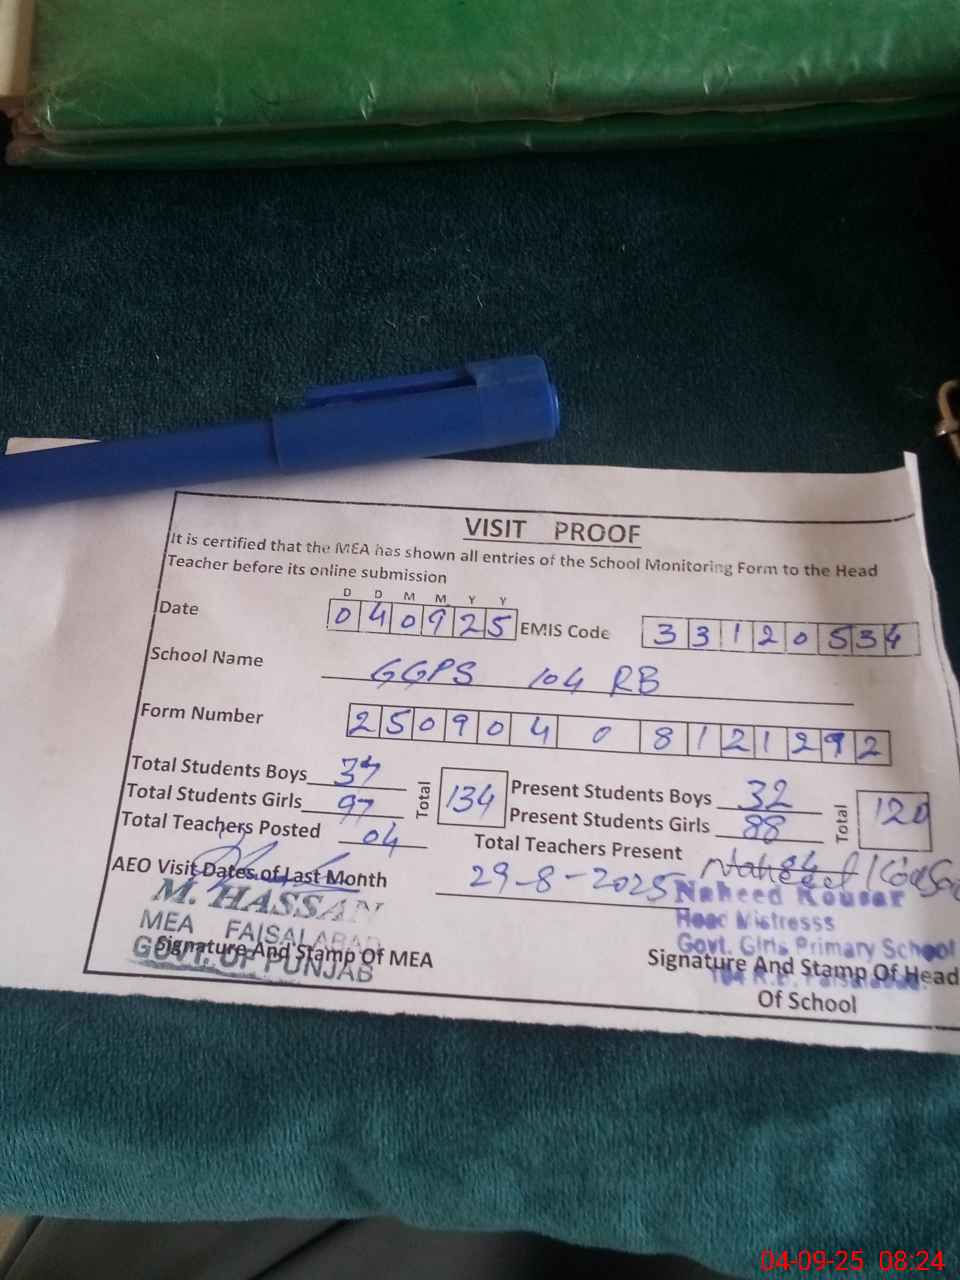 VISIT PROOF
It is certified that the MEA has shown all entries of the School Monitoring Form to the Head
Teacher before its online submission
D D M M Y Y
Date 040925 EMIS Code 33120534
School Name GGPS 104 RB
Form Number 25090408121292
Total Students Boys 37 Total 134 Present Students Boys 32 Total 120
Total Students Girls 97 Present Students Girls 88
Total Teachers Posted 04 Total Teachers Present 04
AEO Visit Dates of Last Month 29-8-2025
Naheed Kousar
M. HASSAN
MEA FAISALABAD
GOVT. OF PUNJAB
Signature And Stamp Of MEA
Naheed Kousar
Head Mistresss
Govt. Girls Primary School
104 R.B. Faisalabad.
Signature And Stamp Of Head
Of School
04-09-25 08:24